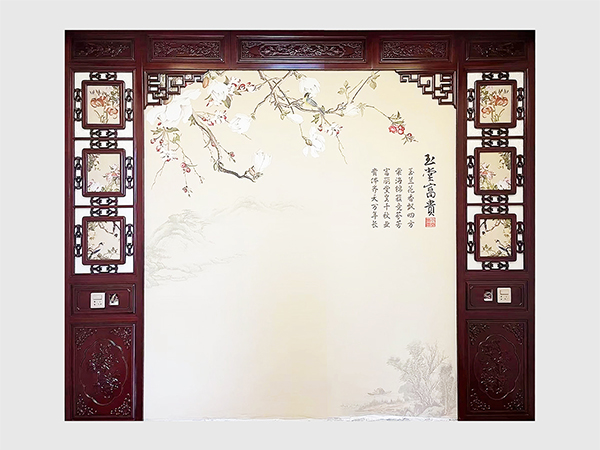 玉堂富貴
玉兰花香飘四方
棠海锦簇竞芬芳
富丽堂皇千秋业
貴齐天万年长